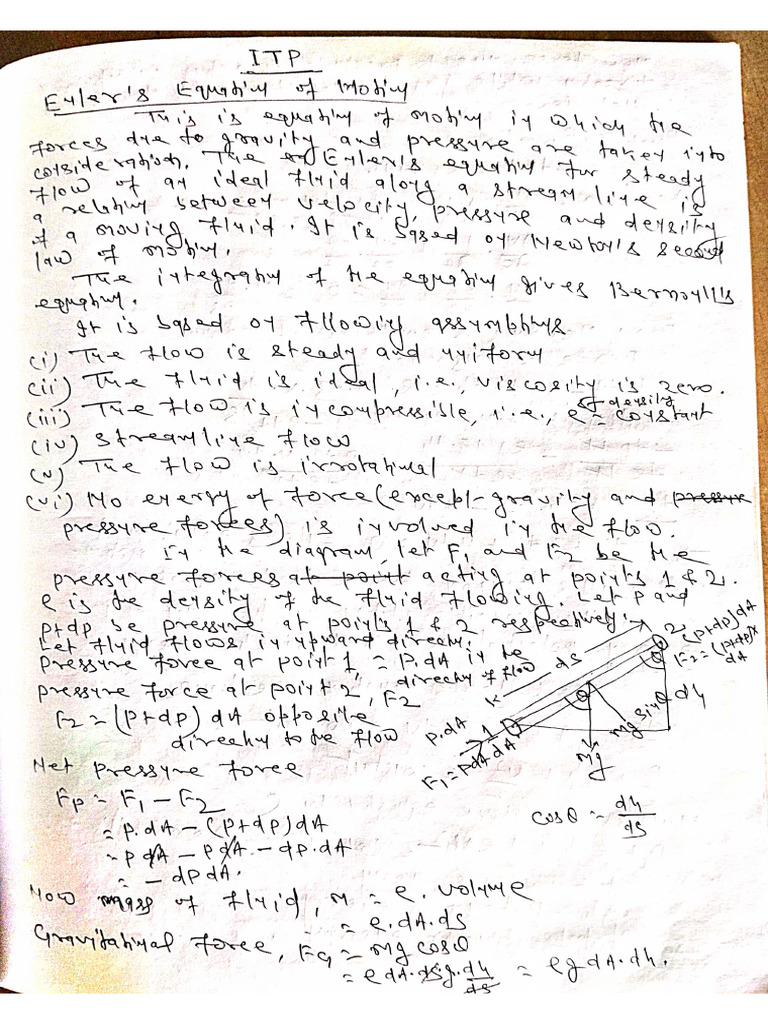 ITP
Euler's Equation of Motion
This is equation of motion in which the
forces due to gravity and pressure are taken into
consideration. The Euler's equation for steady
flow of an ideal fluid along a stream line is
a relation between velocity, pressure and density
of a moving fluid. It is based on Newton's second
law of motion.
The integration of the equation gives Bernoulli's
equation.
It is based on following assumptions
(i) The flow is steady and uniform
(ii) The fluid is ideal, i.e., viscosity is zero.
(iii) The flow is incompressible, i.e., density ρ = constant
(iv) Streamline flow
(v) The flow is irrotational
(vi) No energy of force (except gravity and pressure
pressure forces) is involved in the flow.
In the diagram, let F1 and F2 be the
pressure forces at point acting at points 1 & 2.
ρ is the density of the fluid flowing. Let P and
P+dp be pressure at points 1 & 2 respectively.
Let fluid flows in upward direction.
Pressure force at point 1, = P.dA in the
direction of flow
pressure force at point 2, F2
F2 = (P+dp) dA opposite
direction to the flow
ds
2
(P+dp) dA
F2 = (P+dp) x
dA
P.dA
1
F1 = PdA
dA
θ
θ
mg sinθ
dh
mg
cosθ = dh/ds
Net pressure force
Fp = F1 - F2
= P.dA - (P+dp) dA
= PdA - PdA - dp.dA
= - dp dA.
Now mass of fluid, m = ρ. volume
= ρ.dA.ds
Gravitational force, Fg = mg cosθ
= ρ dA.ds g. dh/ds = ρg dA.dh.